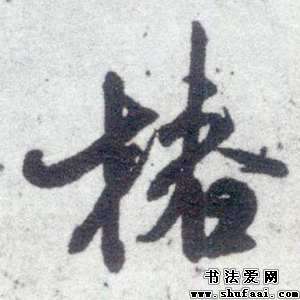 楮
书法爱网
www.shufaai.com